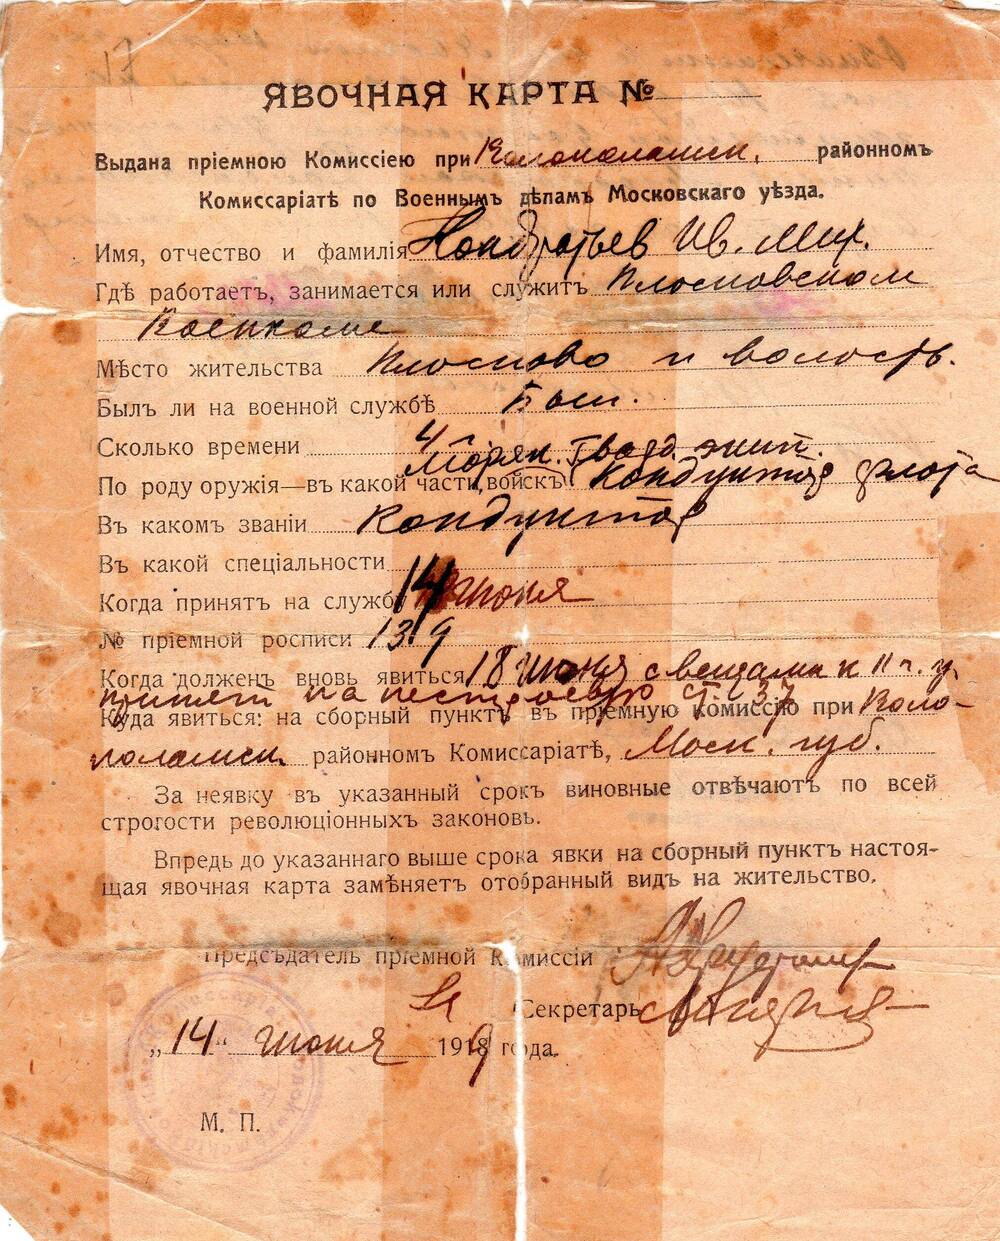 17
ЯВОЧНАЯ КАРТА №
Выдана пріемною Комиссіею при Волоколамск. районномъ
Комиссаріатѣ по Военнымъ дѣламъ Московскаго уѣзда.
Имя, отчество и фамилія Кондратьев Ив. Мих.
Гдѣ работаетъ, занимается или служитъ Плосковском
Военкоме
Мѣсто жительства Плосково и волость.
Былъ ли на военной службѣ Был.
Сколько времени 4
По роду оружія—въ какой части войскъ Кондуктор флота
Въ какомъ званіи Кондуктор
Въ какой спеціальности
Когда принятъ на службу 14 июня
№ пріемной росписи 139
Когда долженъ вновь явиться 18 июня с вещами к 11 ч. у.
принят на нестроевую ст. 37
Куда явиться: на сборный пунктъ въ пріемную комиссію при Воло-
коламск. районномъ Комиссаріатѣ, Моск. губ.
За неявку въ указанный срокъ виновные отвѣчаютъ по всей
строгости революціонныхъ законовъ.
Впредь до указаннаго выше срока явки на сборный пунктъ настоя-
щая явочная карта замѣняетъ отобранный видъ на жительство.
Предсѣдатель пріемной Комиссіи
Секретарь
„14“ июня 1919 года.
М. П.